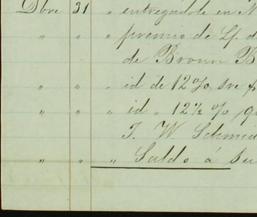 Dbre 31 " entregadole en N
" " " premio de Lp d
de Brown B
" " " id de 12% sre p
" " " id " 12½ %
T. W. Schmid
" " " Saldo á su